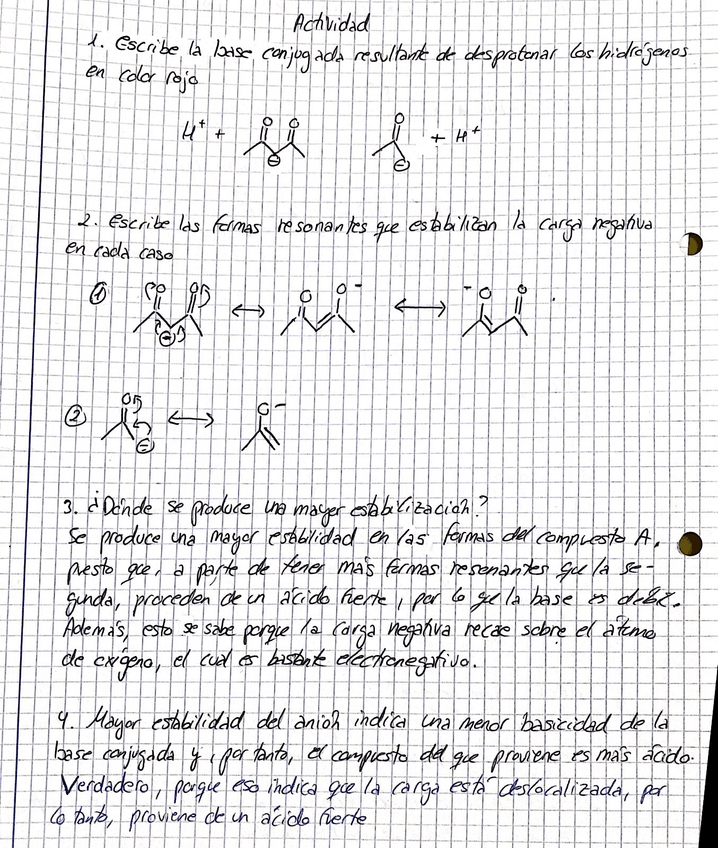 Actividad
1. Escribe la base conjugada resultante de desprotonar los hidrógenos
en color rojo
H+ + O O ⊖ O ⊖ + H+
2. Escribe las formas resonantes que estabilizan la carga negativa
en cada caso
① O O ⊖ ↔ O O⁻ ↔ ⁻O O
② O ⊖ ↔ O⁻
3. ¿Dónde se produce una mayor estabilización?
Se produce una mayor estabilidad en las formas del compuesto A,
puesto que, a parte de tener más formas resonantes que la se-
gunda, proceden de un ácido fuerte, por lo que la base es débil.
Además, esto se sabe porque la carga negativa recae sobre el átomo
de oxígeno, el cual es bastante electronegativo.
4. Mayor estabilidad del anión indica una menor basicidad de la
base conjugada y, por tanto, el compuesto del que proviene es más ácido.
Verdadero, porque eso indica que la carga está deslocalizada, por
lo tanto, proviene de un ácido fuerte